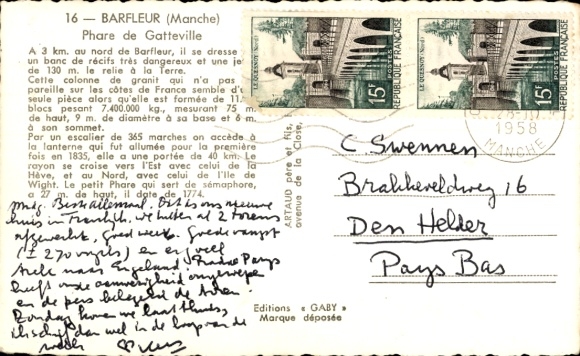 16 — BARFLEUR (Manche)
Phare de Gatteville
A 3 km. au nord de Barfleur, il se dresse
un banc de récifs très dangereux et une je
de 130 m. le relie à la Terre.
Cette colonne de granit qui n'a pas
pareille sur les côtes de France semble d'u
seule pièce alors qu'elle est formée de 11.
blocs pesant 7.400.000 kg., mesurant 75 m
de haut, 9 m. de diamètre à sa base et 6 m
à son sommet.
Par un escalier de 365 marches on accède à
la lanterne qui fut allumée pour la première
fois en 1835, elle a une portée de 40 km. Le
rayon se croise vers l'Est avec celui de la
Hève, et au Nord, avec celui de l'Ile de
Wight. Le petit Phare qui sert de sémaphore,
a 27 m. de haut, il date de 1774.
Best allemaal. Dit is ons nieuwe
huis in Frankrijk, we hebben al 2 torens
afgewerkt, goed weer. Goede vangst
(± 270 vogels) en er
naar Engeland.
heeft onze aanwezigheid
en de pers
Zondag komen we laat thuis,
ik schrijf dan wel in de loop van de
week
ARTAUD père et fils,
avenue de la Close,
Editions « GABY »
Marque déposée
LE QUESNOY (Nord)
15F
POSTES
RÉPUBLIQUE FRANÇAISE
LE QUESNOY (Nord)
15F
POSTES
RÉPUBLIQUE FRANÇAISE
1958
MANCHE
C Swennen
Brakkeveldweg 16
Den Helder
Pays Bas